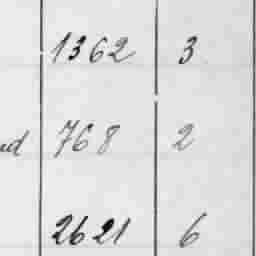 1362 3
768 2
2621 6